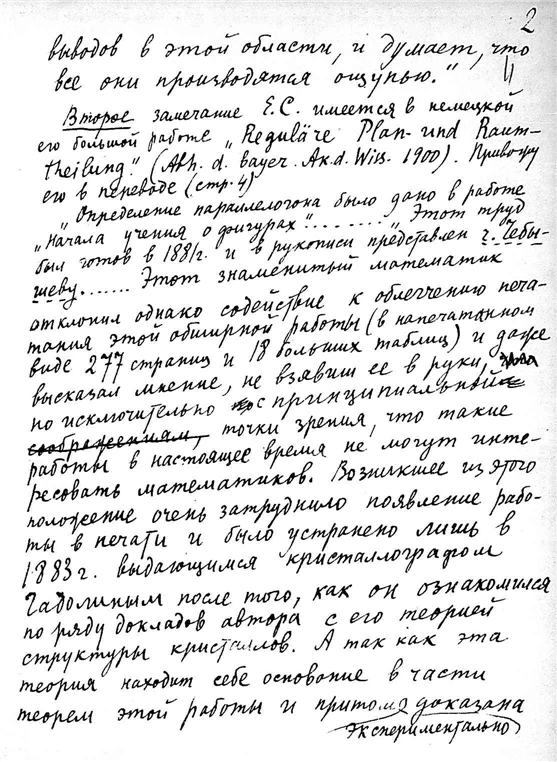 2
выводов в этой области, и думает, что
все они производятся ощупью."
Второе замечание Е.С. имеется в немецкой
его большой работе „Reguläre Plan- und Raum-
theilung." (Abh. d. bayer. Ak. d. Wiss. 1900). Привожу
его в переводе (стр. 4)
„Определение параллелогона было дано в работе
„Начала учения о фигурах"......... „Этот труд
был готов в 1881г. и в рукописи представлен г. Чебы-
шеву....... Этот знаменитый математик
отклонил однако содействие к облегчению печа-
тания этой обширной работы (в напечатанном
виде 277 страниц и 18 больших таблиц) и даже
высказал мнение, не взявши ее в руки,
но исключительно с принципиальной
соображениям, точки зрения, что такие
работы в настоящее время не могут инте-
ресовать математиков. Возникшее из этого
положение очень затруднило появление рабо-
ты в печати и было устранено лишь в
1883г. выдающимся кристаллографом
Гадолиным после того, как он ознакомился
по ряду докладов автора с его теорией
структуры кристаллов. А так как эта
теория находит себе основание в части
теорем этой работы и притом доказана
экспериментально